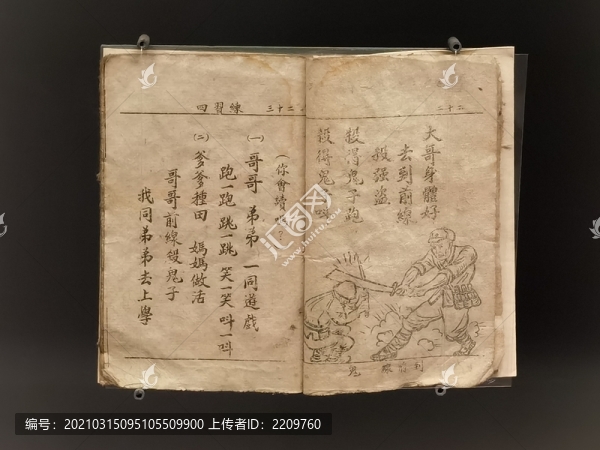 二十二
大哥身體好
去到前線
殺强盗
殺得鬼子跑
殺得鬼子叫
二十三
練習四
(你會讀嗎?)
(一) 哥哥 弟弟 一同遊戲
跑一跑 跳一跳 笑一笑 叫一叫
(二) 爹爹種田 媽媽做活
哥哥前線殺鬼子
我同弟弟去上學
汇图网
编号：20210315095105509900 上传者ID：2209760